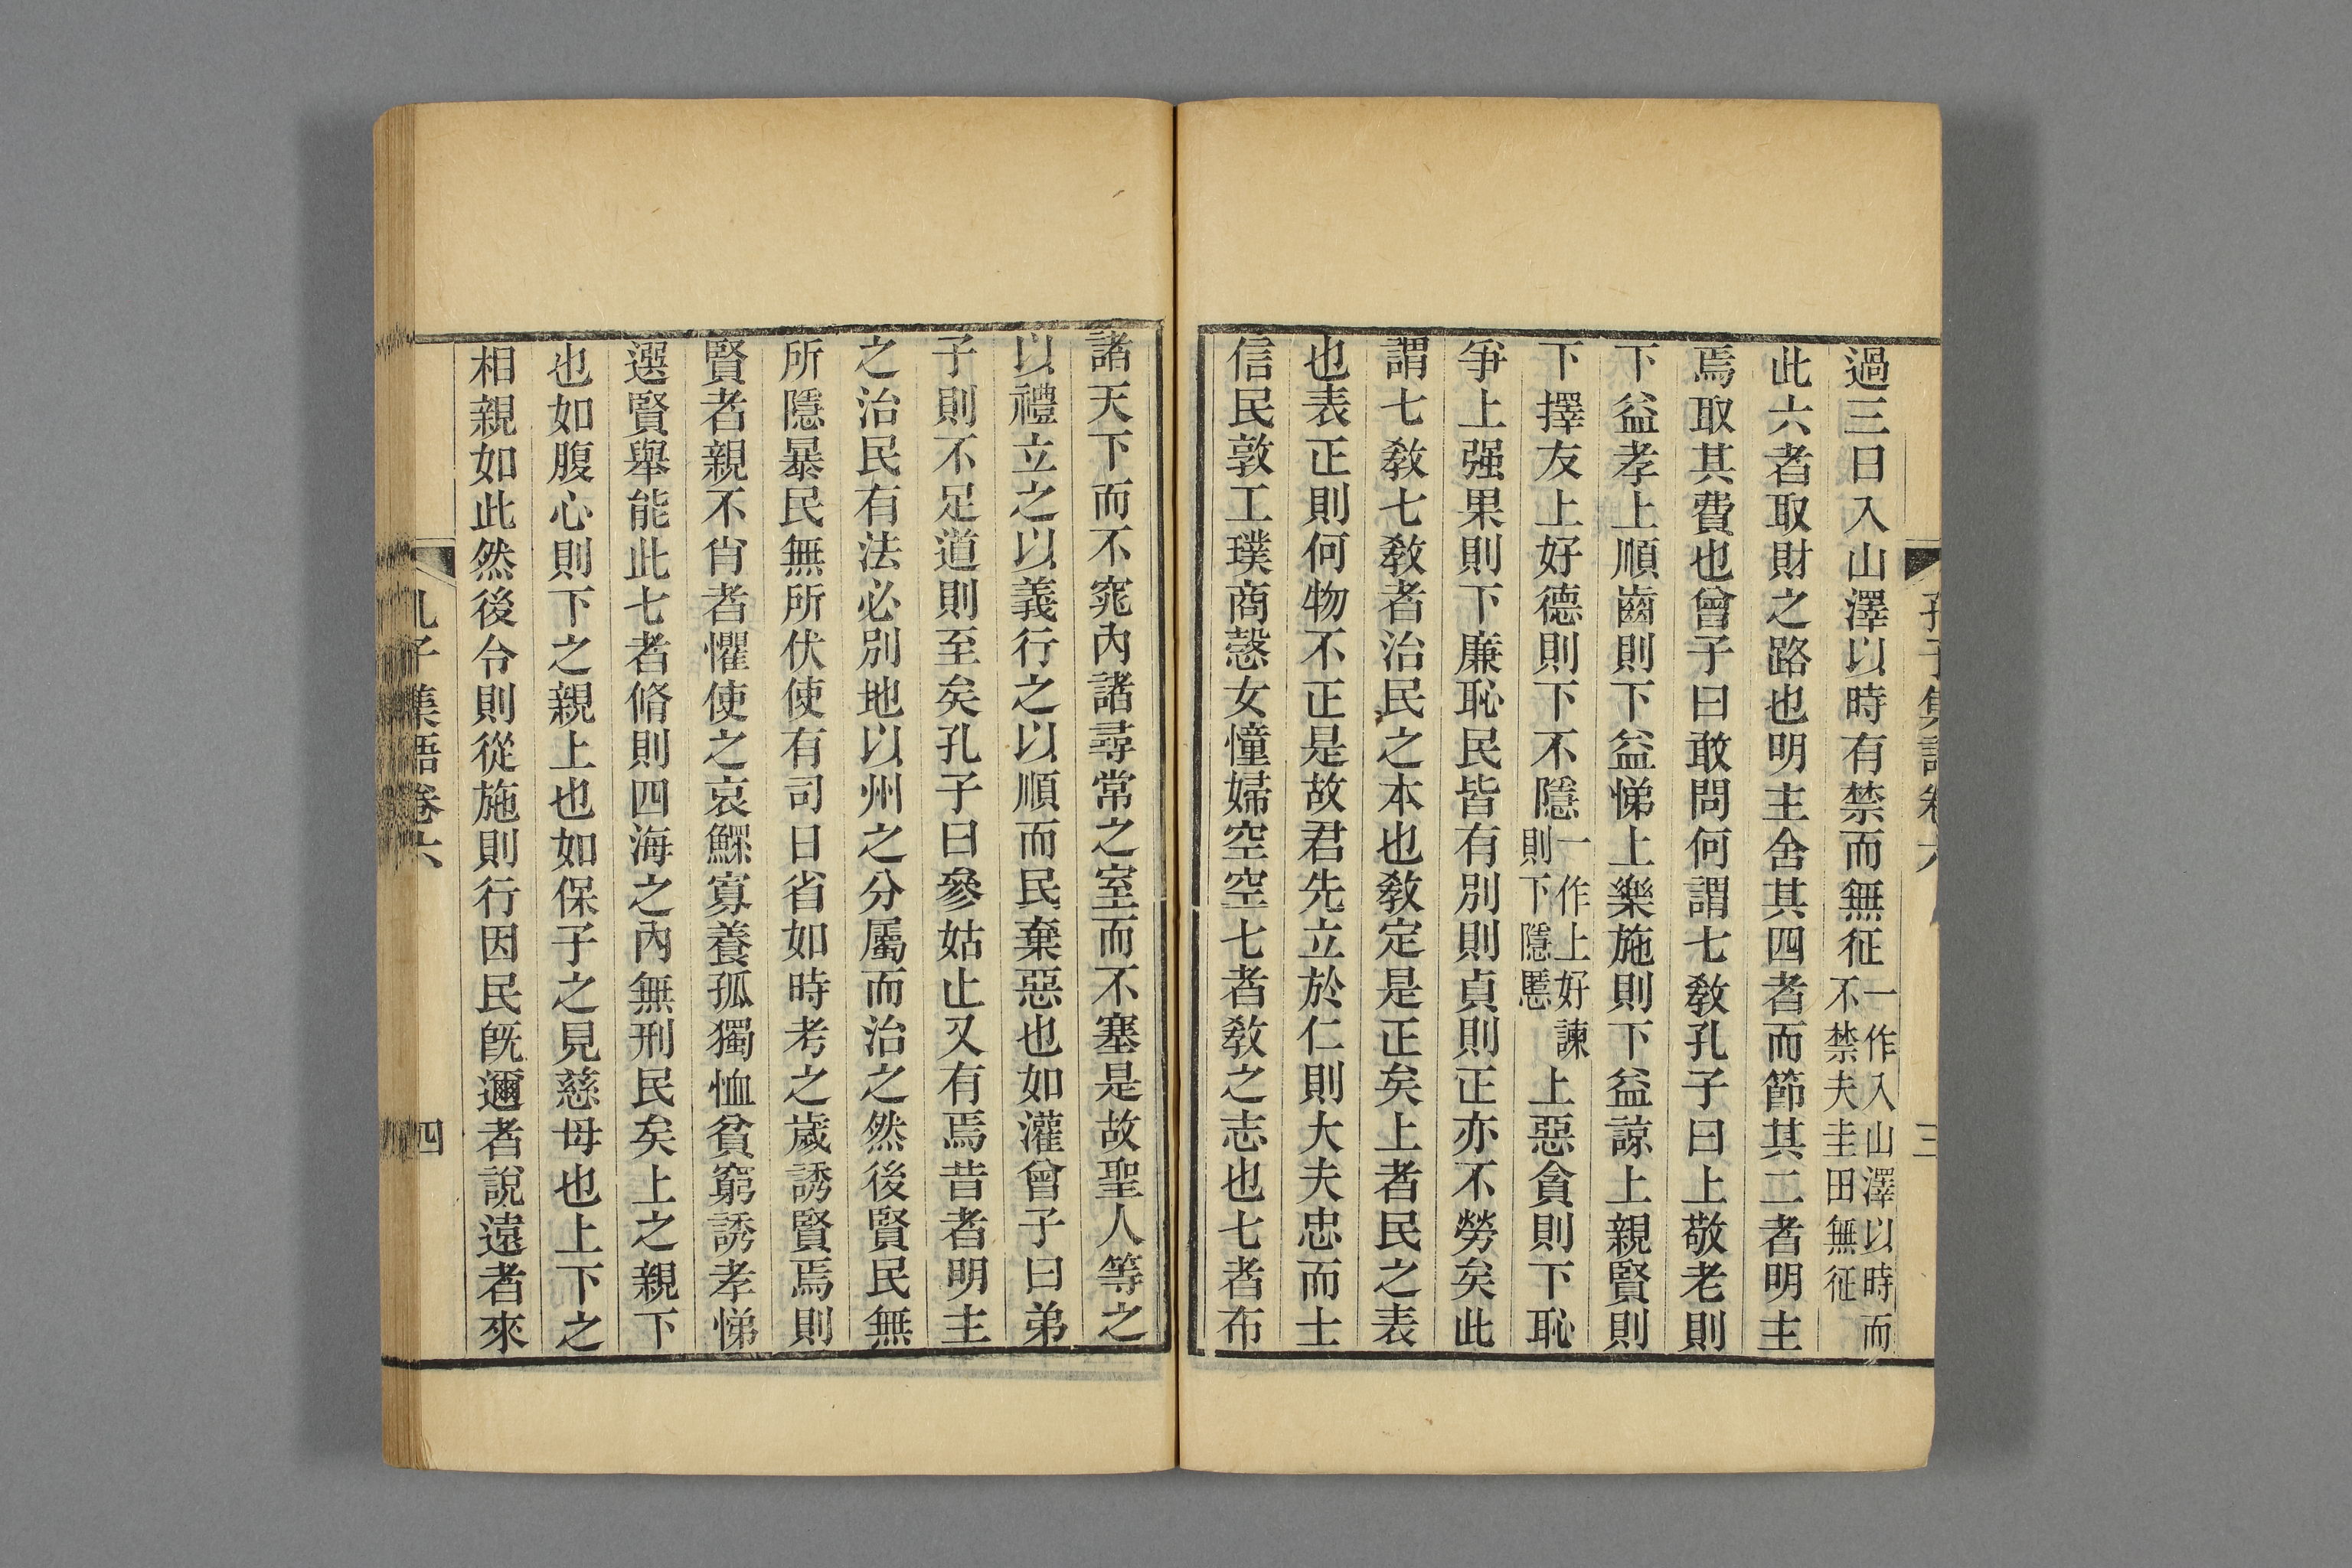 孔子集語卷六
三
過三日入山澤以時有禁而無征一作入山澤以時而不禁夫圭田無征
此六者取財之路也明主舍其四者而節其二者明主
焉取其費也曾子曰敢問何謂七敎孔子曰上敬老則
下益孝上順齒則下益悌上樂施則下益諒上親賢則
下擇友上好德則下不隱一作上好諫則下隱慝上惡貪則下恥
爭上强果則下廉恥民皆有別則貞則正亦不勞矣此
謂七敎七敎者治民之本也敎定是正矣上者民之表
也表正則何物不正是故君先立於仁則大夫忠而士
信民敦工璞商慤女憧婦空空七者敎之志也七者布
諸天下而不窕內諸尋常之室而不塞是故聖人等之
以禮立之以義行之以順而民棄惡也如灌曾子曰弟
子則不足道則至矣孔子曰參姑止又有焉昔者明主
之治民有法必別地以州之分屬而治之然後賢民無
所隱暴民無所伏使有司日省如時考之歲誘賢焉則
賢者親不肖者懼使之哀鰥寡養孤獨恤貧窮誘孝悌
選賢舉能此七者脩則四海之內無刑民矣上之親下
也如腹心則下之親上也如保子之見慈母也上下之
相親如此然後令則從施則行因民旣邇者說遠者來
孔子集語卷六
四